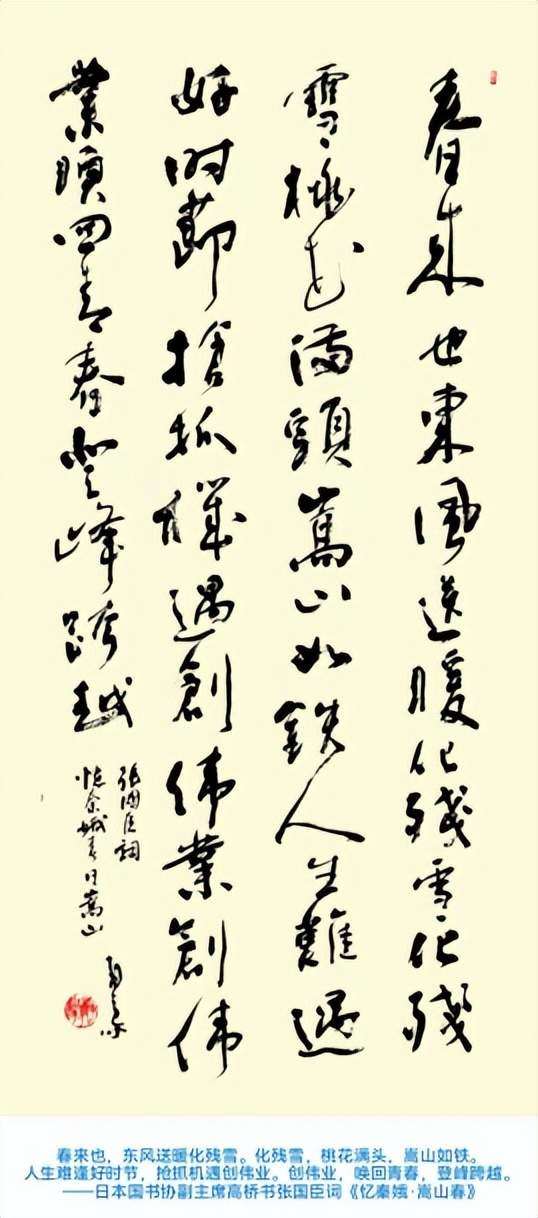 春來也東風送暖化殘雪化殘
雪桃花滿頭嵩山如鐵人生難
好时節搶抓機遇創偉業創偉
業喚回青春登峰跨越
張國臣詞
憶秦娥春日嵩山
春来也，东风送暖化残雪。化残雪，桃花满头，嵩山如铁。
人生难逢好时节，抢抓机遇创伟业。创伟业，唤回青春，登峰跨越。
——日本国书协副主席高桥书张国臣词《忆秦娥·嵩山春》